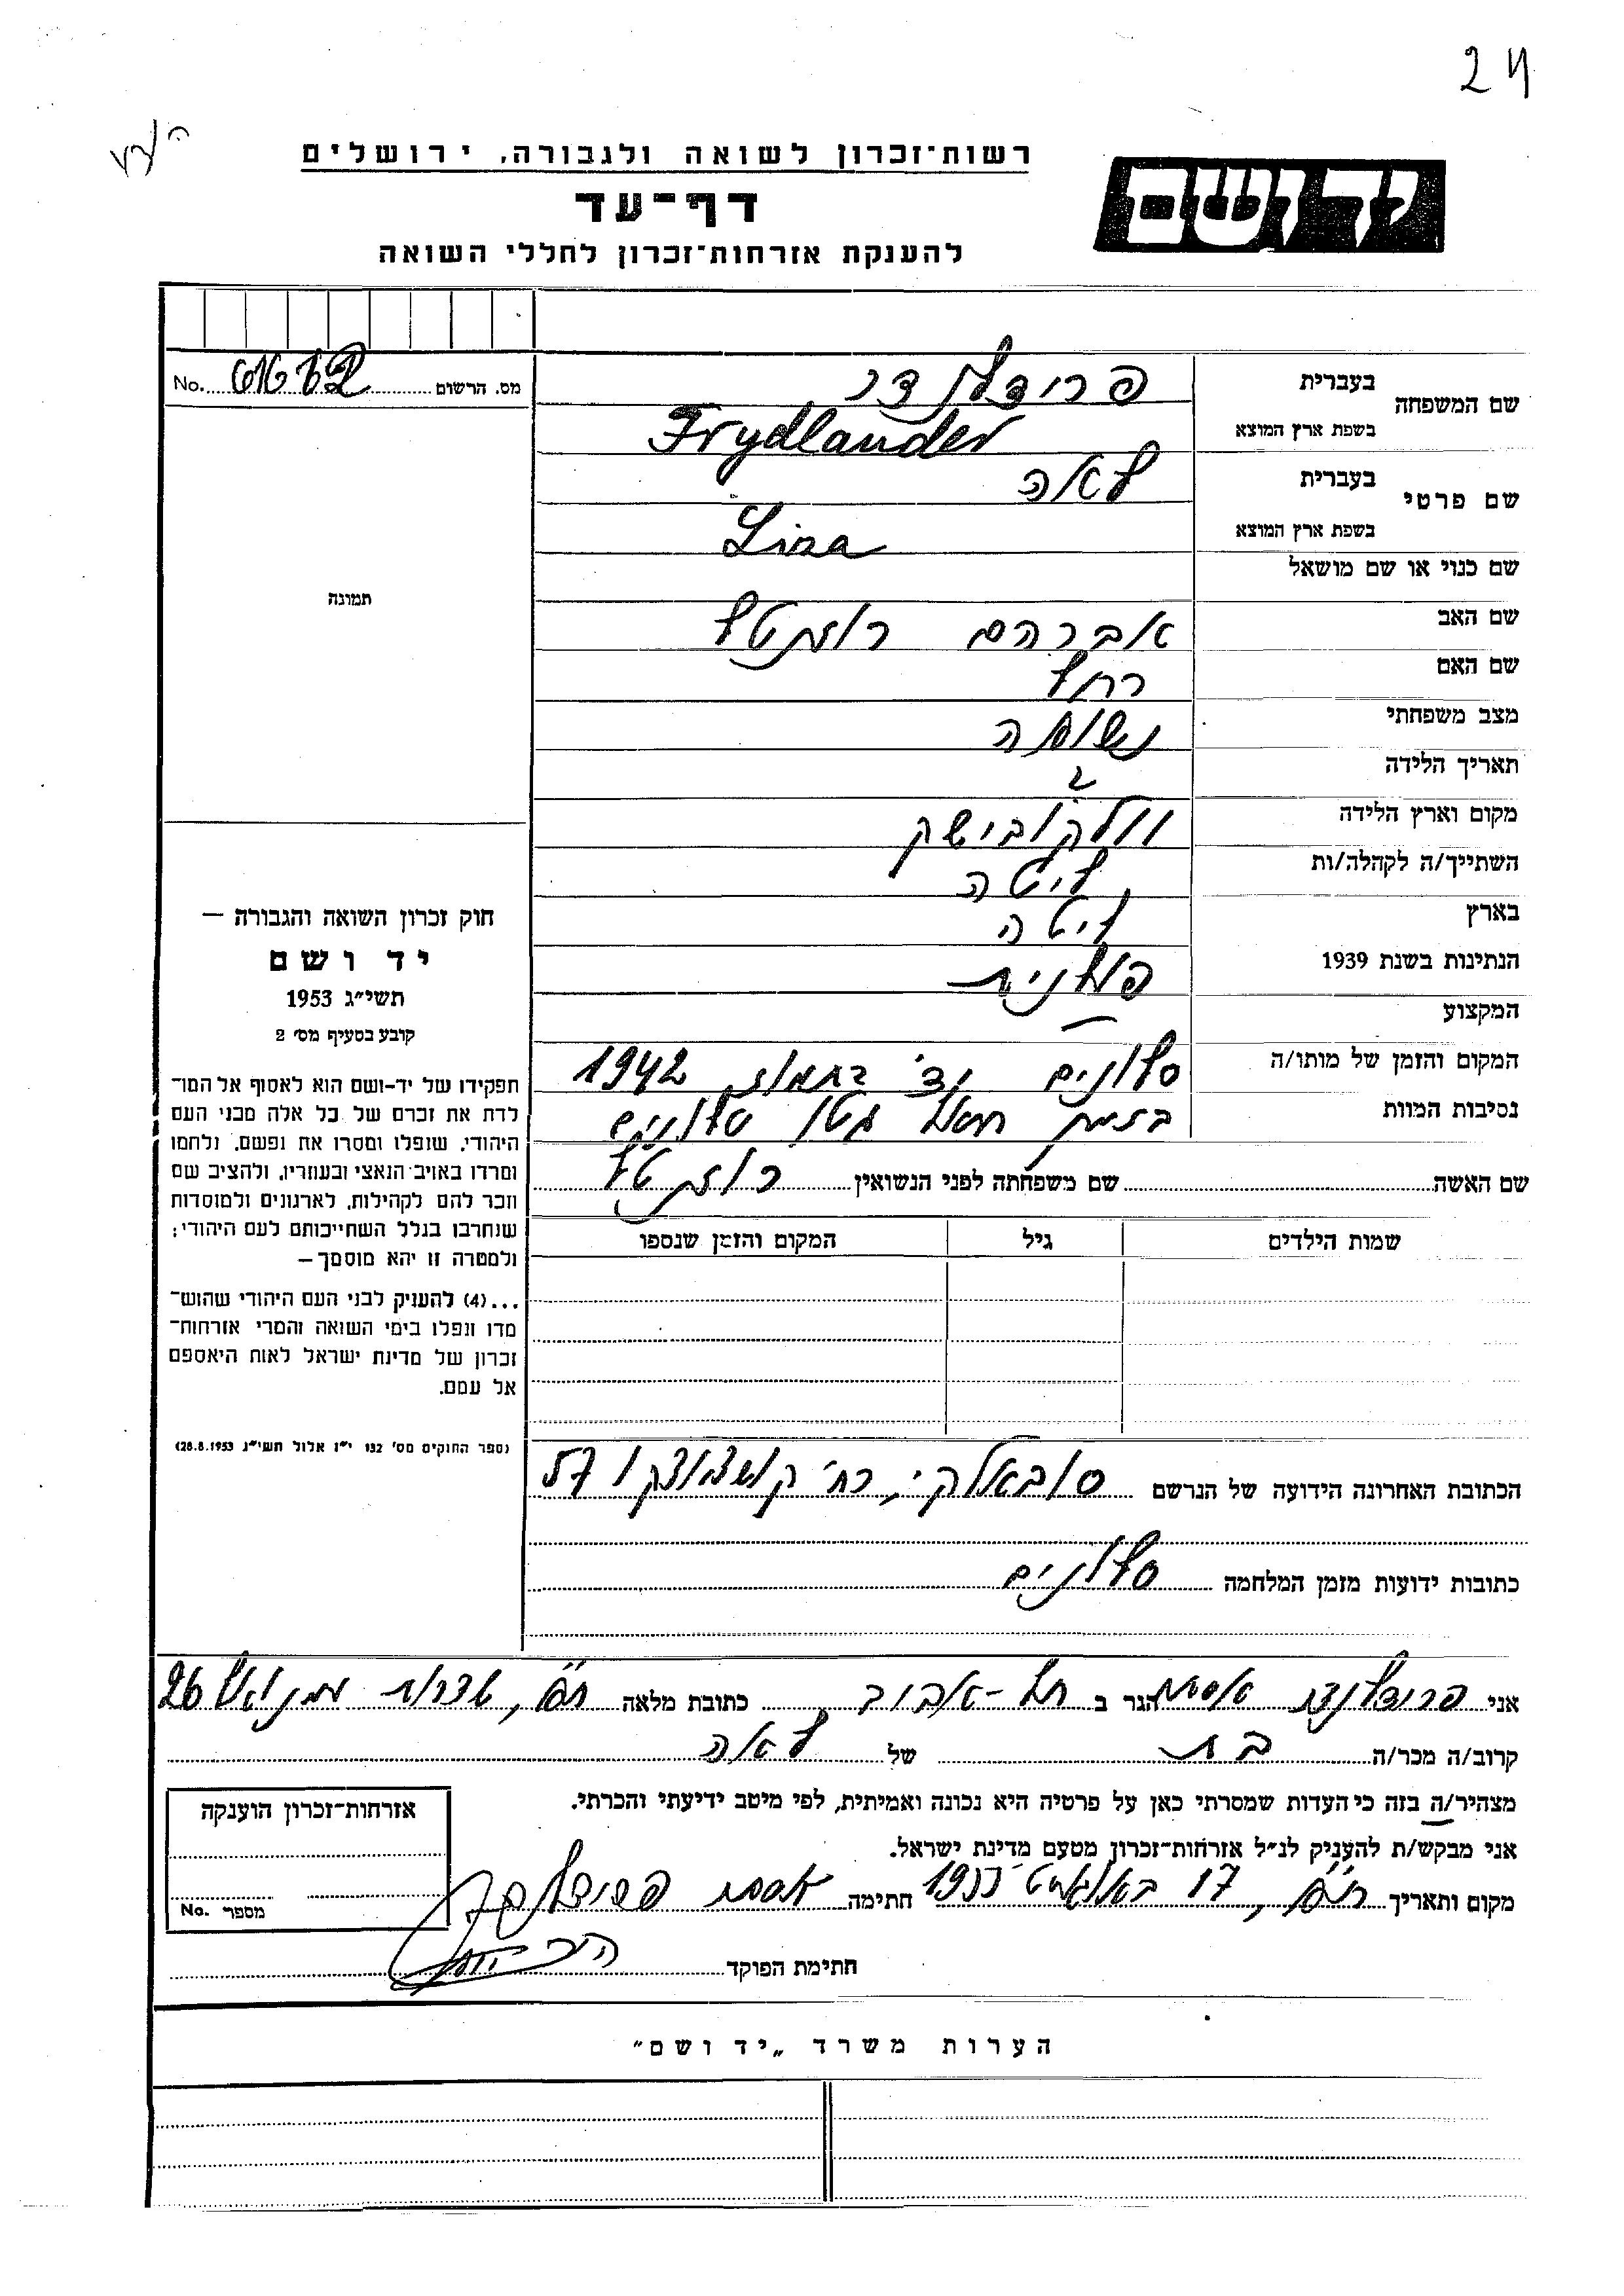 24
רשות־זכרון לשואה ולגבורה, ירושלים
יד ושם
דף־עד
להענקת אזרחות־זכרון לחללי השואה
מס. הרשום No.
שם המשפחה
בעברית פרידלנדר
בשפת ארץ המוצא Frydlander
שם פרטי
בעברית לאה
בשפת ארץ המוצא Liza
שם כנוי או שם מושאל
שם האב אברהם רוזנטל
שם האם רחל
מצב משפחתי נשואה
תאריך הלידה ?
מקום וארץ הלידה וולקובישק
השתייך/ה לקהלה/ות ליטה
בארץ ליטה
הנתינות בשנת 1939 פולנית
המקצוע —
המקום והזמן של מותו/ה סלונים בתמוז 1942
נסיבות המוות בזמן חסול גטו סלונים
שם האשה שם משפחתה לפני הנשואין רוזנטל
שמות הילדים גיל המקום והזמן שנספו
הכתובת האחרונה הידועה של הנרשם סובאלקי, רח' קושצושקו 57
כתובות ידועות מזמן המלחמה סלונים
תמונה
חוק זכרון השואה והגבורה —
יד ושם
תשי״ג 1953
קובע בסעיף מס׳ 2
תפקידו של יד-ושם הוא לאסוף אל המו־
לדת את זכרם של כל אלה מבני העם
היהודי, שנפלו ומסרו את נפשם, נלחמו
ומרדו באויב הנאצי ובעוזריו, ולהציב שם
וזכר להם לקהילות, לארגונים ולמוסדות
שנחרבו בגלל השתייכותם לעם היהודי;
ולמטרה זו יהא מוסמך —
...(4) להעניק לבני העם היהודי שהוש־
מדו ונפלו בימי השואה והמרי אזרחות־
זכרון של מדינת ישראל לאות היאספם
אל עמם.
(ספר החוקים מס' 132 י״ז אלול תשי״ג 28.8.1953)
אני פרידלנדר אסתר הגר ב תל-אביב כתובת מלאה ת״א, שדרות 26
קרוב/ה מכר/ה בת של לאה
מצהיר/ה בזה כי העדות שמסרתי כאן על פרטיה היא נכונה ואמיתית, לפי מיטב ידיעתי והכרתי.
אני מבקש/ת להעניק לנ״ל אזרחות־זכרון מטעם מדינת ישראל.
מקום ותאריך ת״א, 17 באוגוסט 1955 חתימה אסתר פרידלנדר
חתימת הפוקד
אזרחות־זכרון הוענקה
מספר No.
הערות משרד „יד ושם״